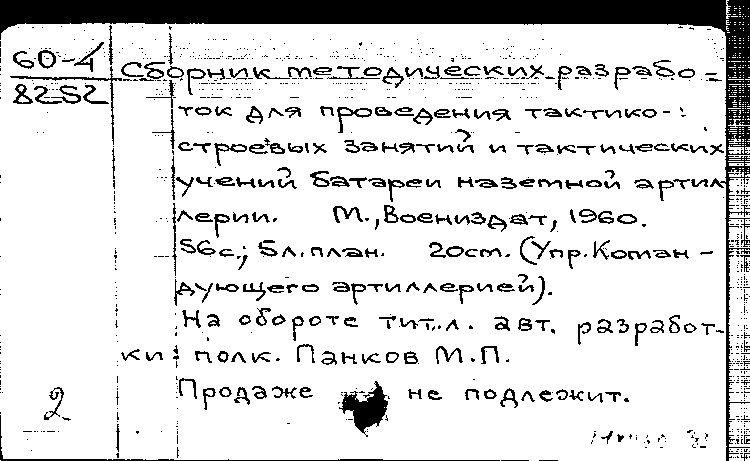 60-4
8252
Сборник методических разрабо =
ток для проведения тактико-
строевых занятий и тактических
учений батареи наземной артил
лерии. М., Воениздат, 1960.
56с.; 5л.план. 20см. (Упр. Коман -
дующего артиллерией).
На обороте тит.л. авт. разработ-
ки: полк. Панков М.П.
Продаже не подлежит.
2